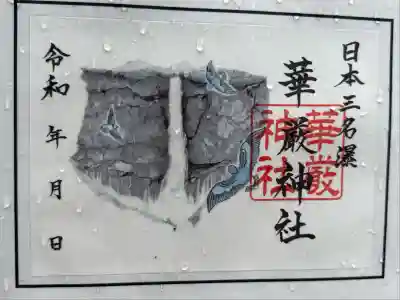 日本三名瀑
華厳神社
華厳
神社
令和 年 月 日